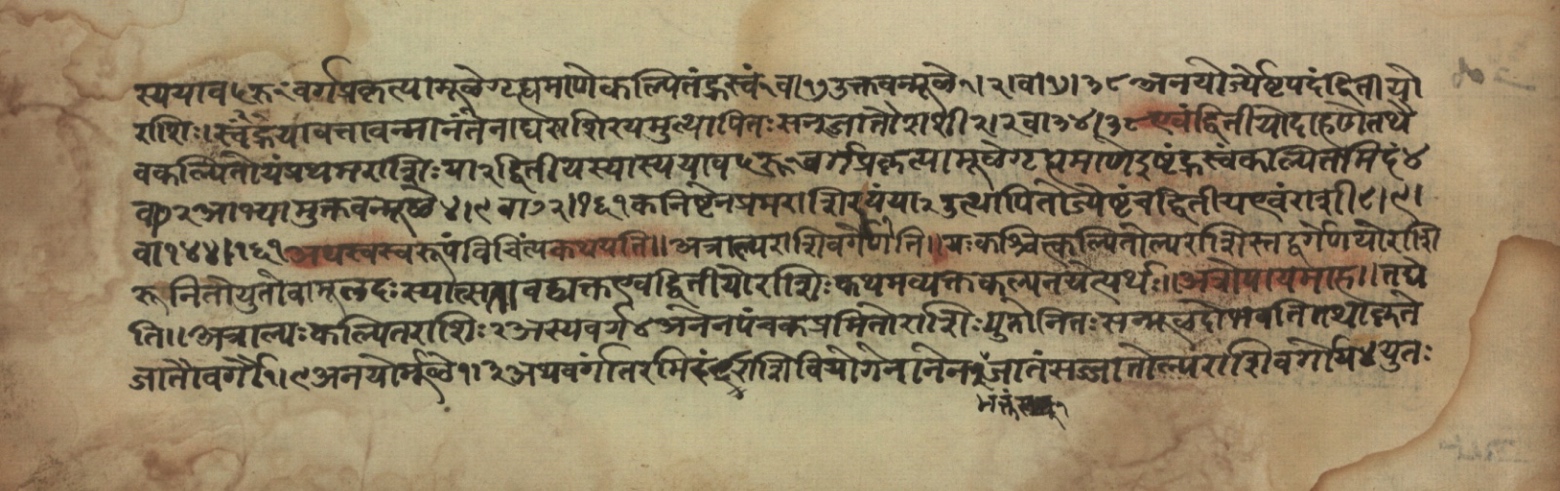 स्ययाव ५ रू १ वर्गप्रकृत्यामूलेगृह्यमाणेकल्पितंह्रस्वं १ वा १७ उक्तवन्मूले १। २। वा १७। ३८ अनयोर्ज्येष्टपदंद्वितीयो
राशिः। ह्रस्वंयावत्तावन्मानंतेनाद्यराशिरयमुत्थापितःसनुजातौराशी २। २ वा ३४। ३८ एवंद्वितीयोदाहणेतथै
वकल्पितोयंप्रथमराशिः या २ द्वितीयस्यास्ययाव ५ रू १ वर्गप्रकृत्यामूलेगृह्यमाणेइष्टंह्रस्वंकल्पितमिदं ४
वा ७२ आभ्यामुक्तवन्मूले ४। ९ वा ७२। १६१ कनिष्टेनप्रथमराशिरयंया २ उत्थापितोज्येष्टंचद्वितीयएवंराशी ८। ९।
वा १४४। १६१ अथस्वस्वरूपंविचिंत्यकथयति॥ अत्राल्पराशिवर्गेणेति॥ यःकश्चित्कल्पितोल्पराशिस्तद्वर्गेणयोराशि
रूनितोयुतोवामूलदःस्यात्सतावद्व्यक्तएवद्वितीयोराशिःकथमव्यक्तकल्पनयेत्यर्थः॥ अत्रोपायमाह॥ तद्ये
ति॥ अत्राल्पःकल्पितराशिः २ अस्यवर्ग ४ अनेनपंचकप्रमितोराशिःयुतोनितःसन्मूलदोभवतितथाकृते
जातौवर्गौ १। ९ अनयोर्मूले १। ३ अथवर्गांतरमिदं राशिवियोगेनानेन जातंसज्जातोल्पराशिवर्गोयं ४ युतः
भक्तं